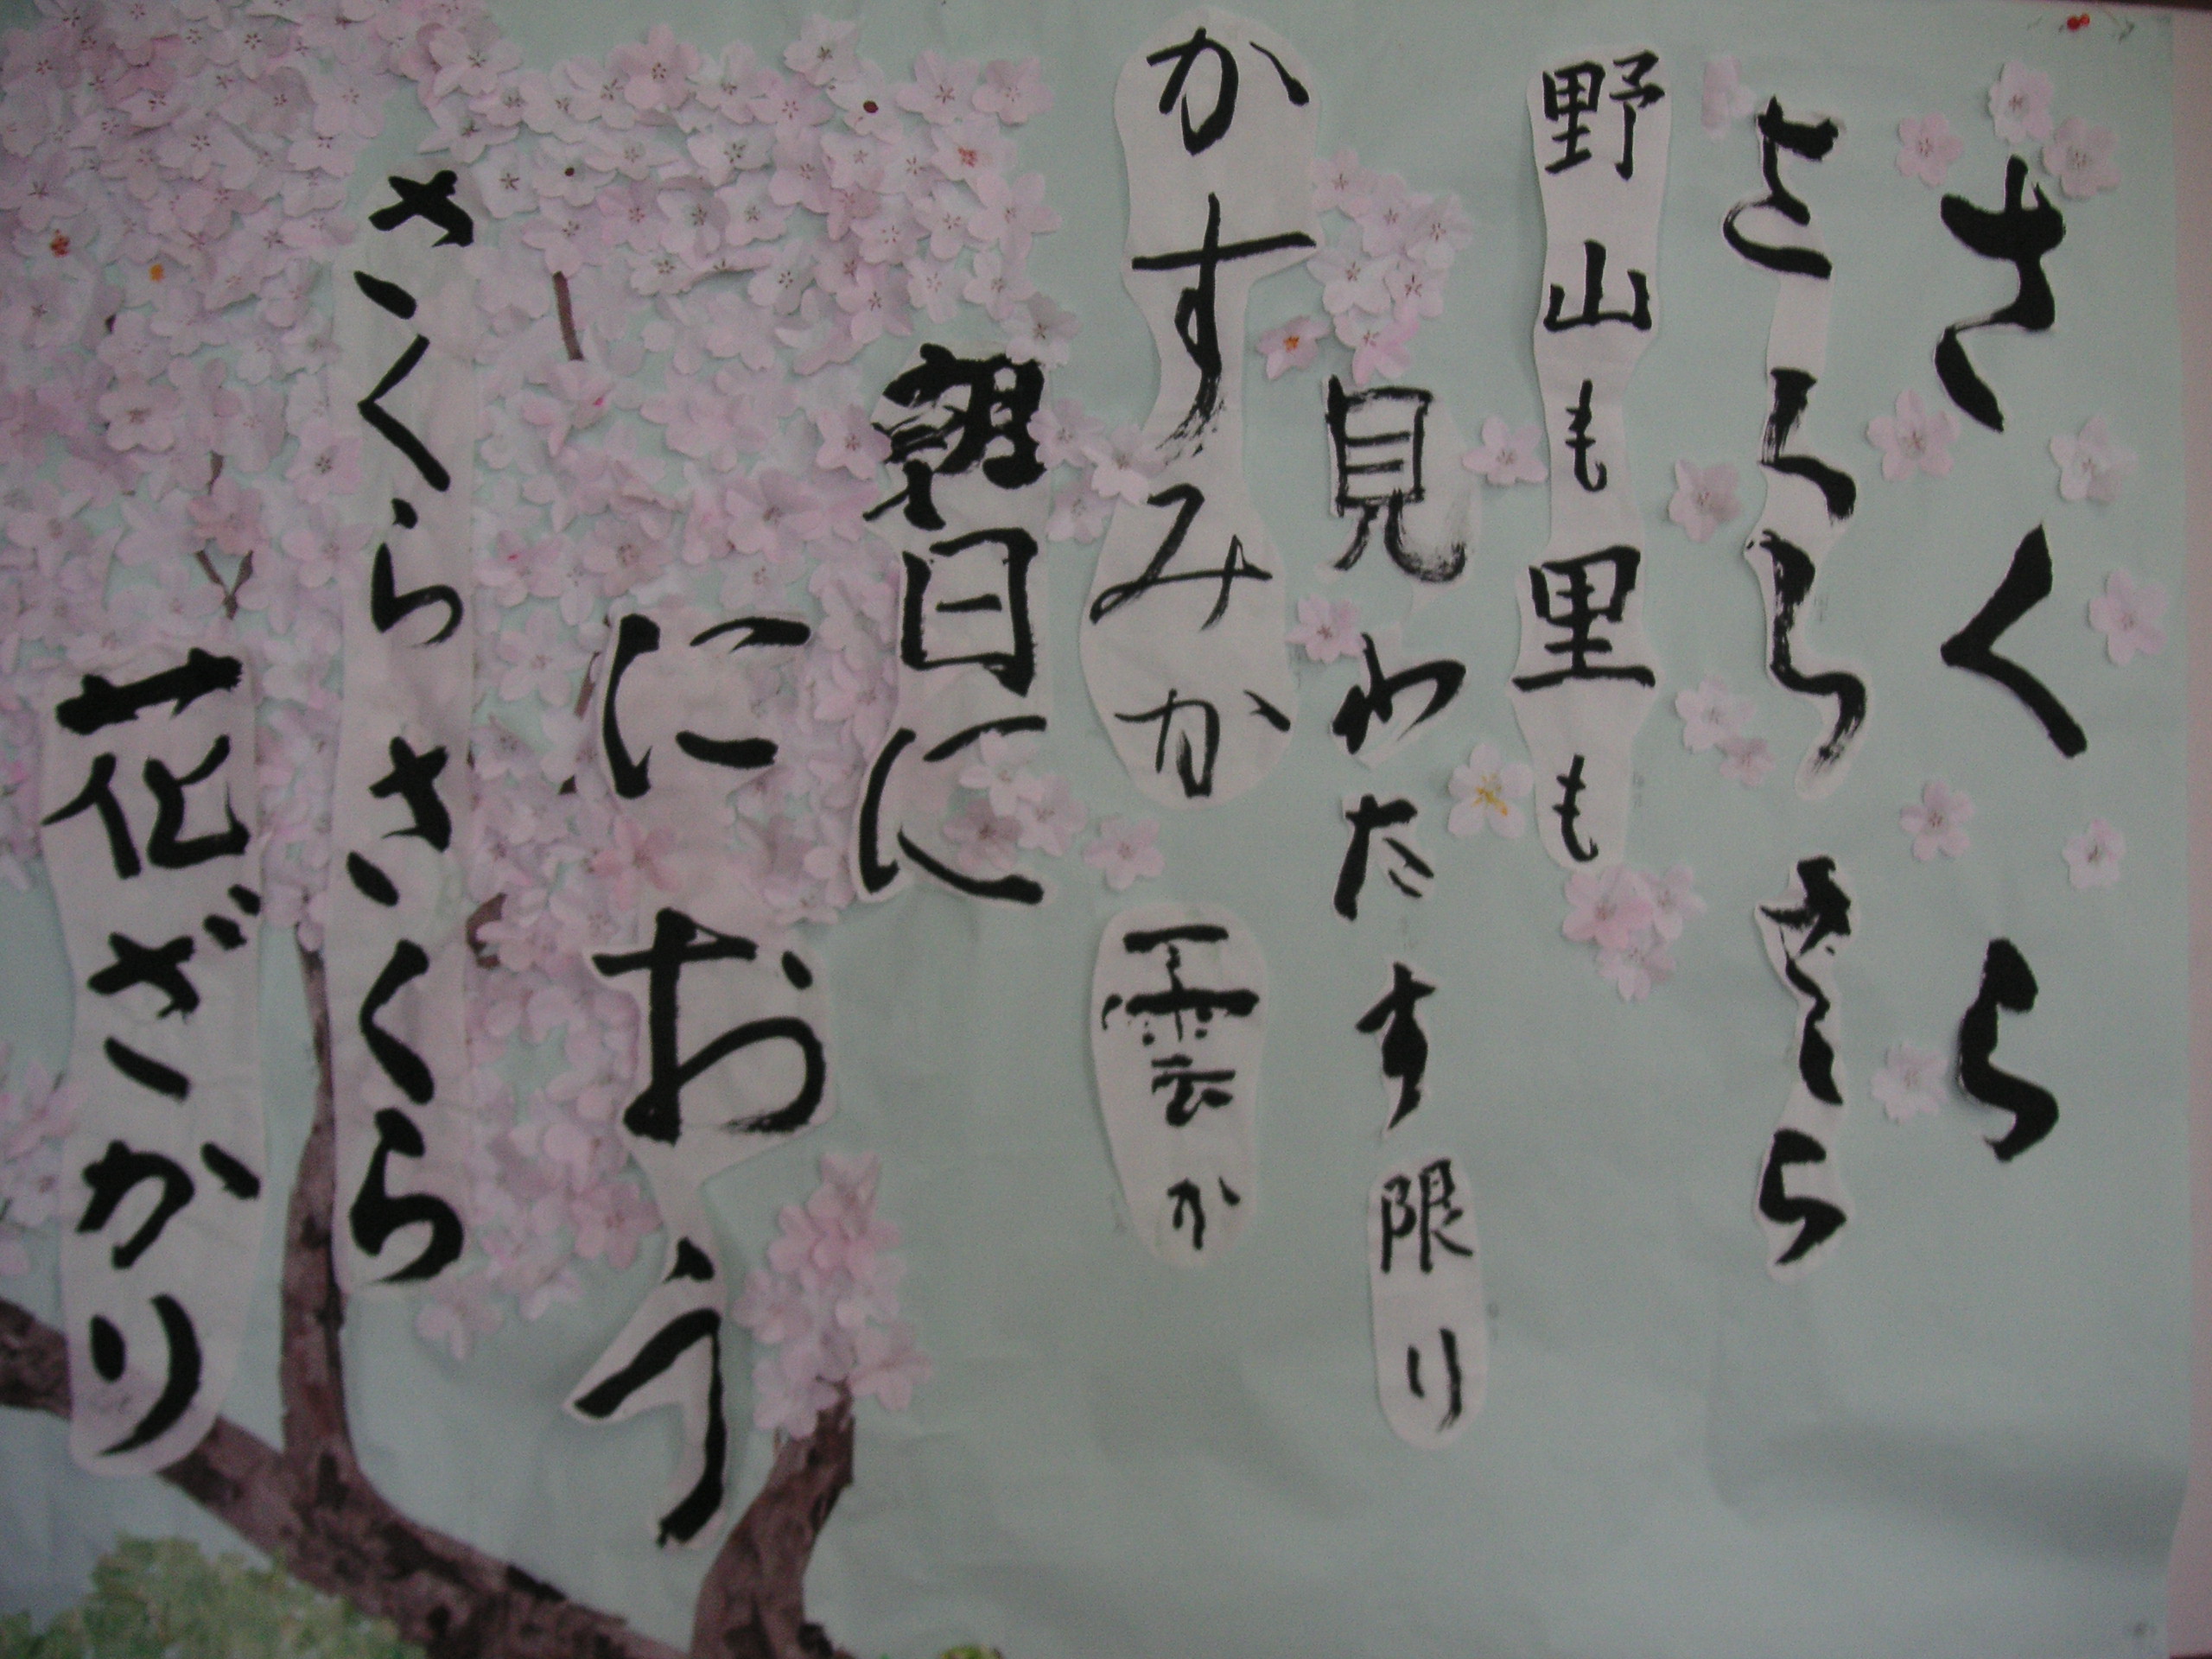 さくら
さくら さくら
野山も里も
見わたす限り
かすみか 雲か
朝日に
におう
さくらさくら
花ざかり